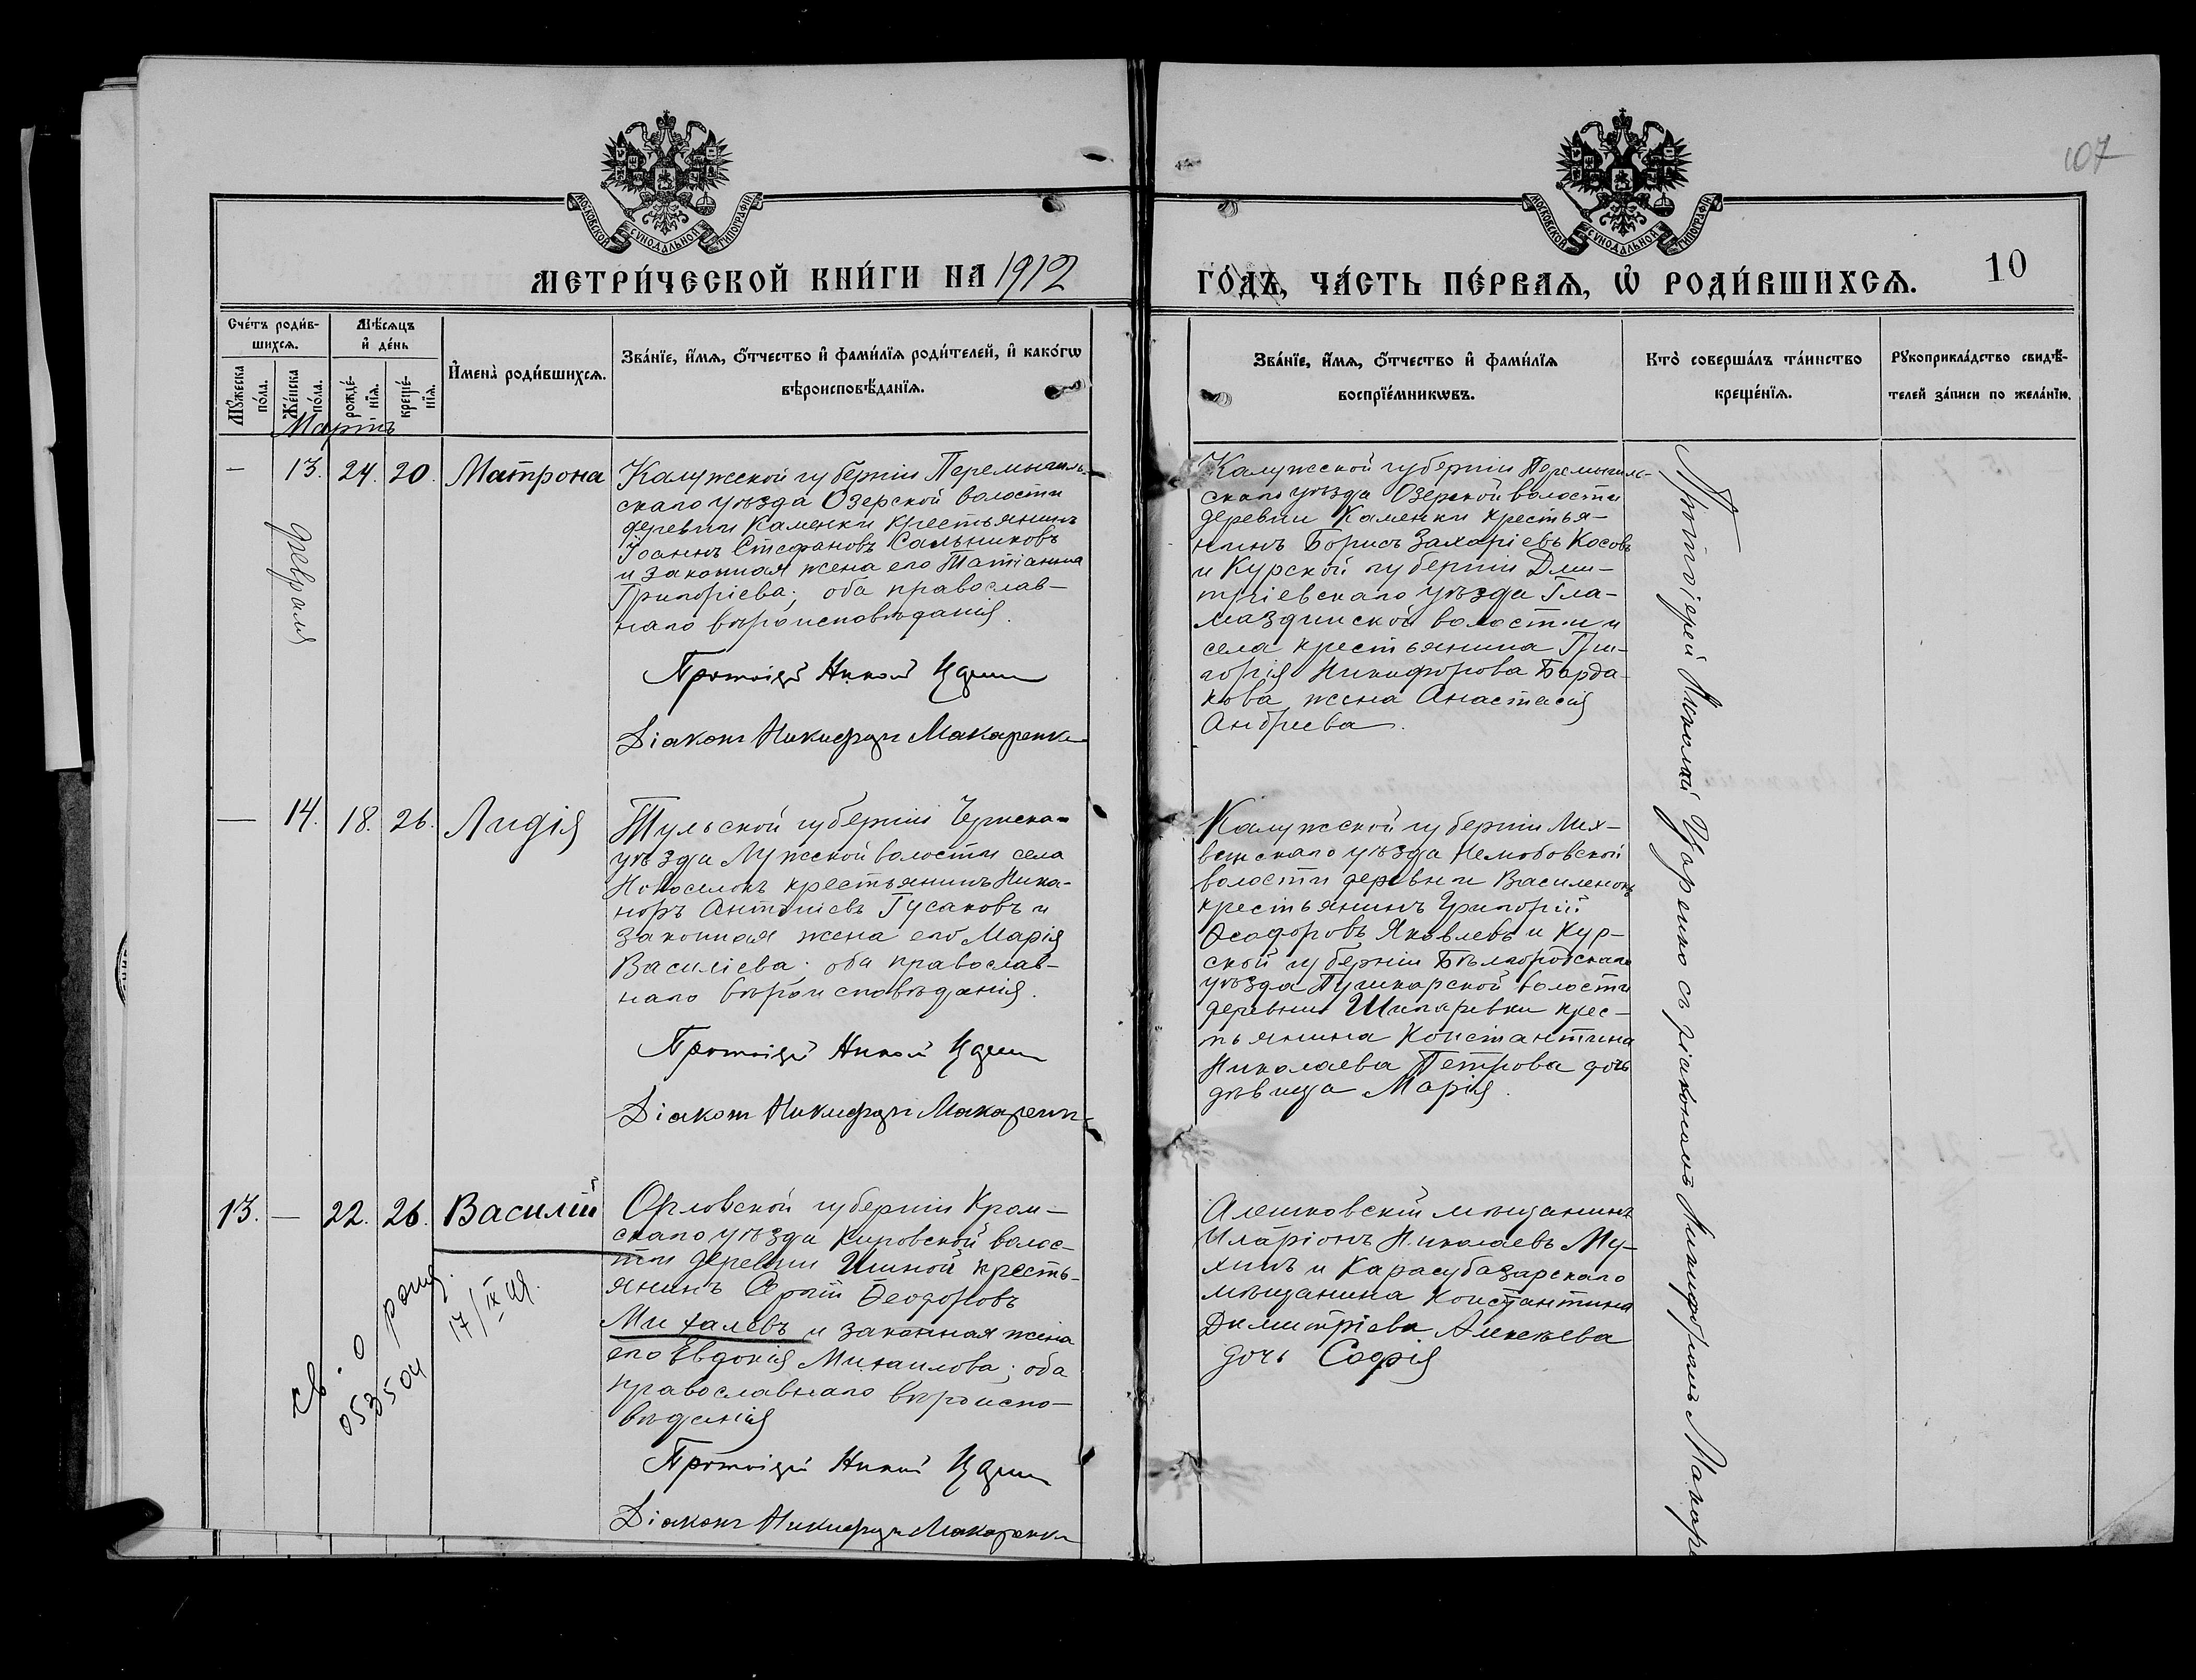 107
МОСКОВСКОЙ СѴНОДАЛЬНОЙ ТИПОГРАФІИ
МОСКОВСКОЙ СѴНОДАЛЬНОЙ ТИПОГРАФІИ
МЕТРИ́ЧЕСКОЙ КНИ́ГИ НА 1912
ГО́ДЪ, ЧА́СТЬ ПЕ́РВАѦ, Ѡ҆ РОДИ́ВШИХСѦ.
10
Сче́тъ роди́в-
шихсѧ.
Мꙋ́жеска по́ла.
Же́нска по́ла.
Мѣ́сѧцъ
и҆ де́нь
рожде́-нїѧ.
креще́-нїѧ.
И҆мена̀ роди́вшихсѧ.
Зва́нїе, и҆́мѧ, ѻ҆́тчество и҆ фами́лїѧ роди́телей, и҆ како́гѡ
вѣроисповѣ́данїѧ.
Зва́нїе, и҆́мѧ, ѻ҆́тчество и҆ фами́лїѧ
воспрїе́мникѡвъ.
Кто̀ соверша́лъ та́инство
креще́нїѧ.
Рꙋкоприкла́дство свидѣ́-
телей за́писи по жела́нїю.
Мартъ
— 13. 24. 20. Матрона
февраля
Калужской губерніи Перемышль-
скаго уѣзда Озерской волости
деревни Каменки крестьянинъ
Іоаннъ Стефановъ Сальниковъ
и законная жена его Татіанна
Григоріева; оба православ-
наго вѣроисповѣданія.
Протоіерей Николай
Діаконъ Никифоръ Макаренко
Калужской губерніи Перемышль-
скаго уѣзда Озерской волости
деревни Каменки крестья-
нинъ Борисъ Захаріевъ Косовъ
и Курской губерніи Дми-
тріевскаго уѣзда Гла-
маздинской волости и
села крестьянина Гри-
горія Никифорова Барда-
кова жена Анастасія
Андреева.
Протоіерей Николай Царенко съ діакономъ Никифоромъ Макаре
— 14. 18. 26. Лидія
Тульской губерніи Чернска-
уѣзда Лужской волости села
Новоселокъ крестьянинъ Ника-
норъ Антоніевъ Гусаковъ и
законная жена его Марія
Василіева; оба православ-
наго вѣроисповѣданія.
Протоіерей Николай
Діаконъ Никифоръ Макаренко
Калужской губерніи Мих-
уѣзда
волости деревни Василенокъ
крестьянинъ Григорій
Ѳеодоровъ Яковлевъ и Кур-
ской губерніи Бѣлгородскаго
уѣзда Пушкарской волости
деревни Шопаревки крес-
тьянина Константина
Николаева Петрова дочь
дѣвица Марія.
13. — 22. 26. Василій
17/IX 49.
053504
Орловской губерніи Кром-
скаго уѣзда Кировской волос-
ти деревни крестья-
янинъ Ѳеодоровъ
Михалевъ и законная жена
его Евдокія Михаилова; оба
православнаго вѣроиспо-
вѣданія
Протоіерей Николай
Діаконъ Никифоръ Макаренко
Алешковскій мѣщанинъ
Иларіонъ Николаевъ Му-
хинъ и Карасубазарскаго
мѣщанина Константина
Димитріева Алексѣева
дочь Софія